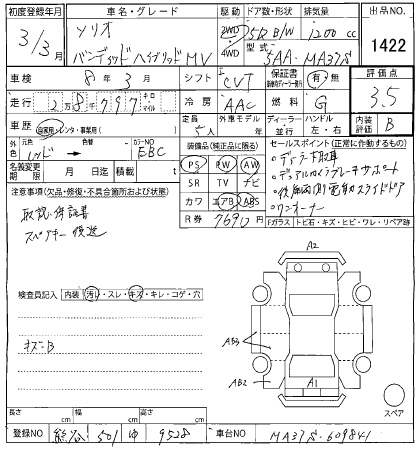 初度登録年月 車名・グレード 駆動 ドア数・形状 排気量 出品NO.
3/3月 ソリオ バンディット ハイブリッド MV 2WD 4WD 5D B/W 1200 cc 1422
型式 5AA-MA37S
車検 8年3月 シフト CVT 保証書 有・無 評価点
走行 2万8千797 キロ マイル 冷房 AAC 燃料 G 3.5
車歴 自家用・レンタ・事業用( ) 定員 5人 外車モデル 年 ディーラー 並行 ハンドル 左・右 内装評価 B
外色 元色 レッド → 色替 カラーNO ZBC
装備品(純正品に限る) セールスポイント(正常に作動するもの)
名義変更期限 月 日迄 積載 t
PS PW AW
SR TV ナビ
カワ エアB ABS
R券 7690円
・ディーラー下取車
・デュアルカメラブレーキサポート
・後席両側電動スライドドア
・ワンオーナー
注意事項(欠品・修復・不具合箇所および状態)
取説・保証書
スペアキー 後送
Fガラス トビ石・キズ・ヒビ・ワレ・リペア跡
検査員記入 内装 汚れ・スレ・キズ・キレ・コゲ・穴
キズB
A2
AB3
AB2
A1
スペア
長さ cm 幅 cm 高さ cm
登録NO 501 ゆ 9528 車台NO MA37S-609841